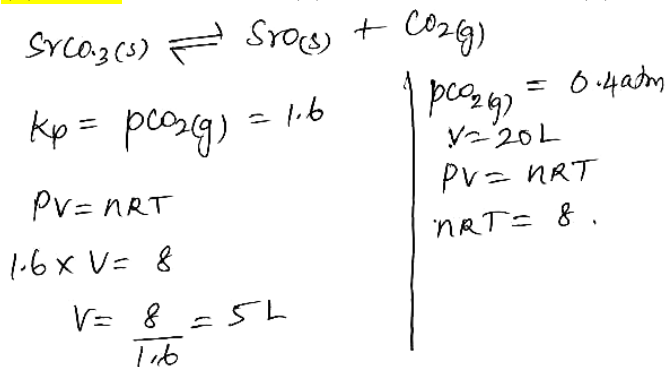 SrCO3(s) ⇌ SrO(s) + CO2(g)
Kp = pCO2(g) = 1.6
PV = nRT
1.6 x V = 8
V = 8/1.6 = 5 L
pCO2(g) = 0.4atm
V = 20 L
PV = nRT
nRT = 8.